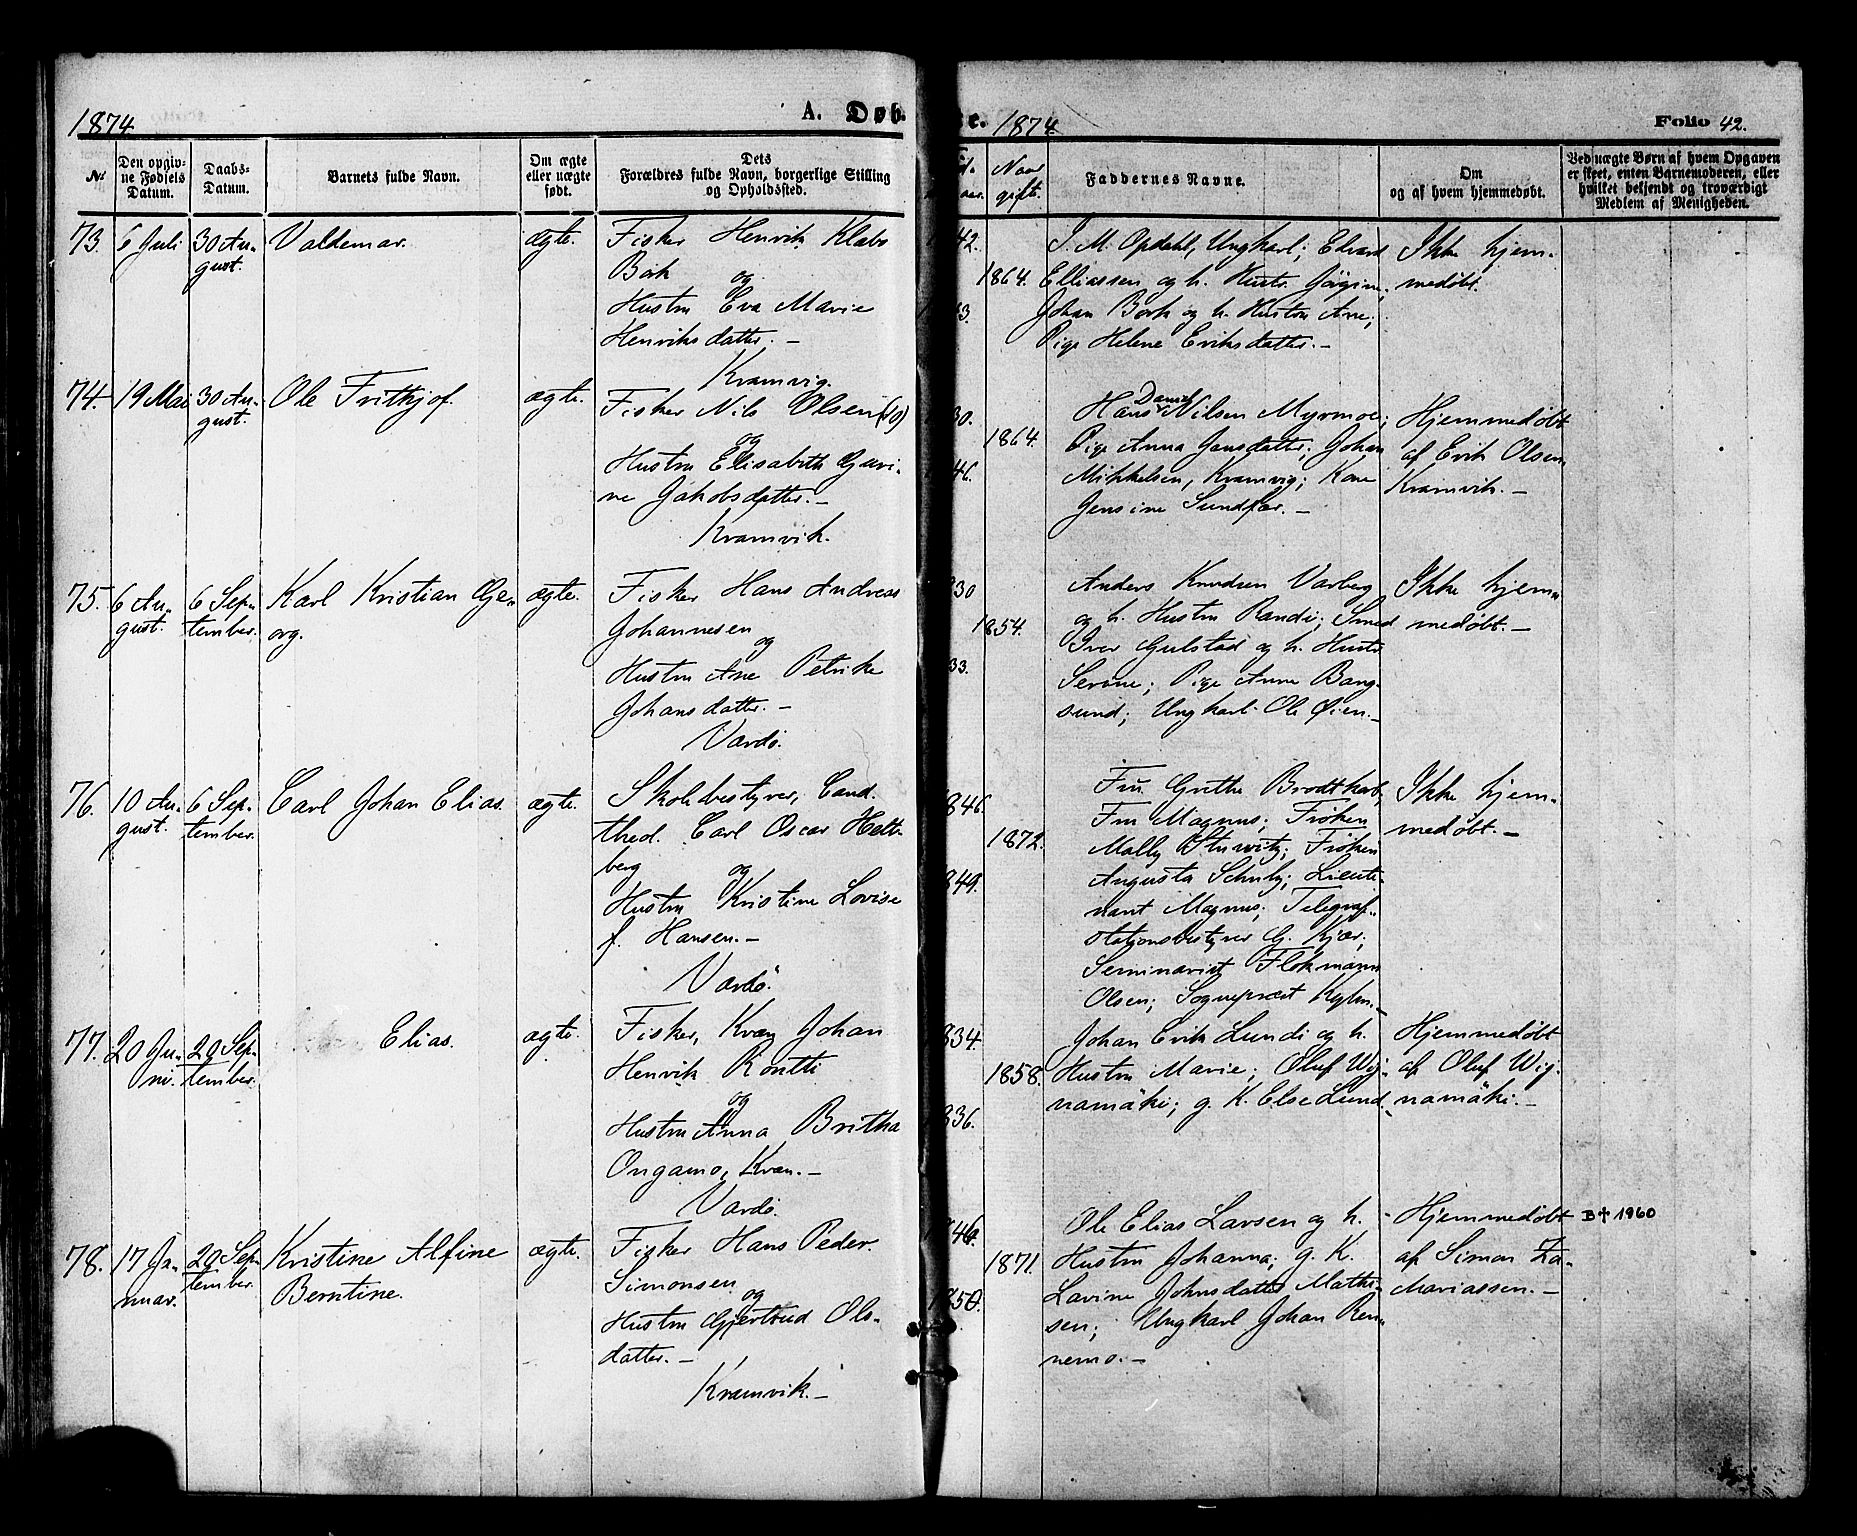 1874
A. Døb-
te. 1874.
Folio 42.
№
Den opgiv-
ne Fødsels
Datum.
Daabs-
Datum.
Barnets fulde Navn.
Om ægte
eller uægte
født.
Dets
Forældres fulde Navn, borgerlige Stilling
og Opholdssted.
Naar
gifte.
Faddernes Navne.
Om
og af hvem hjemmedøbt.
Ved uægte Børn af hvem Opgaven
er skeet, enten Barnemoderen, eller
hvilket bekjendt og troværdigt
Medlem af Menigheden.
73. 6 Juli
30 Au-
gust.
Valdemar.
ægte.
Fisker Henrik Klabs
Bork
og
Hustru Eva Marie
Henriksdatter.—
Kramvig.
42.
1864.
43.
I. M. Opdahl, Ungkarl; Edvard
Elliassen og h. Hustr. Jørgine;
Johan Bork og h. Hustru Ane;
Pige Helene Eriksdatter.—
Ikke hjem-
medøbt.
74. 19 Mai
30 Au-
gust.
Ole Frithjof.
ægte.
Fisker Nils Olsen (10)
og
Hustru Elisabeth Guri-
ne Jakobsdatter.—
Kramvik.
30.
1864.
46.
Daniel
Hans Nilsen Myrmoe;
Pige Anna Jensdatter; Johan
Mikkelsen, Kramvig; Kone
Jensine Sundfær.—
Hjemmedøbt
af Erik Olsen
Kramvik.—
75. 6 Au-
gust.
6 Sep-
tember.
Karl Kristian Ge-
org.
ægte.
Fisker Hans Andreas
Johannesen
og
Hustru Ane Petrike
Johansdatter.—
Vardö.
830
1854.
33.
Anders Knudsen Varberg
og h. Hustru Randi; Smed
Iver Gulstad og h. Hustr.
Serine; Pige Anne Bang-
sund; Ungkarl Ole Øien.—
Ikke hjem-
medøbt.—
76. 10 Au-
gust.
6 Sep-
tember.
Carl Johan Elias.
ægte.
Skolebestyrer, Cand.
theol. Carl Oscar Helt-
berg
og
Hustru Kristine Lovise
f. Hansen.—
Vardö.
846.
1872.
849.
Fru Grethe Brodtkorb,
Fru Magnus; Frøken
Mally Stuwitz; Frøken
Augusta Schulz; Lieute-
nant Magnus; Telegraf-
stationsbestyrer G. Kjær;
Seminarist Flokmann
Olsen; Sognepræst
Ikke hjem-
medøbt.—
77. 20 Ju-
ni.
20 Sep-
tember.
Elias.
ægte.
Fisker, Kvæn Johan
Henrik Kontti
og
Hustru Anna Britha
Ongamo, Kvæn.—
Vardö.
834.
1858.
836.
Johan Erik Lundi og h.
Hustru Marie; Oluf Wig-
namäki; g. K. Else Lund.
Hjemmedøbt
af Oluf Wig-
namäki.—
78. 17 Ja-
nuar.
20 Sep-
tember.
Kristine Alfine
Berntine.
ægte.
Fisker Hans Peder
Simonsen
og
Hustru Gjertrud Ols-
datter.—
Kramvik.—
846.
1871.
1850.
Ole Elias Larsen og h.
Hustru Johanna; g. K.
Lavine Johnsdatter Mathi-
sen; Ungkarl Johan Ren-
nemo.—
Hjemmedøbt
af Simon Za-
chariassen.—
B✝ 1960